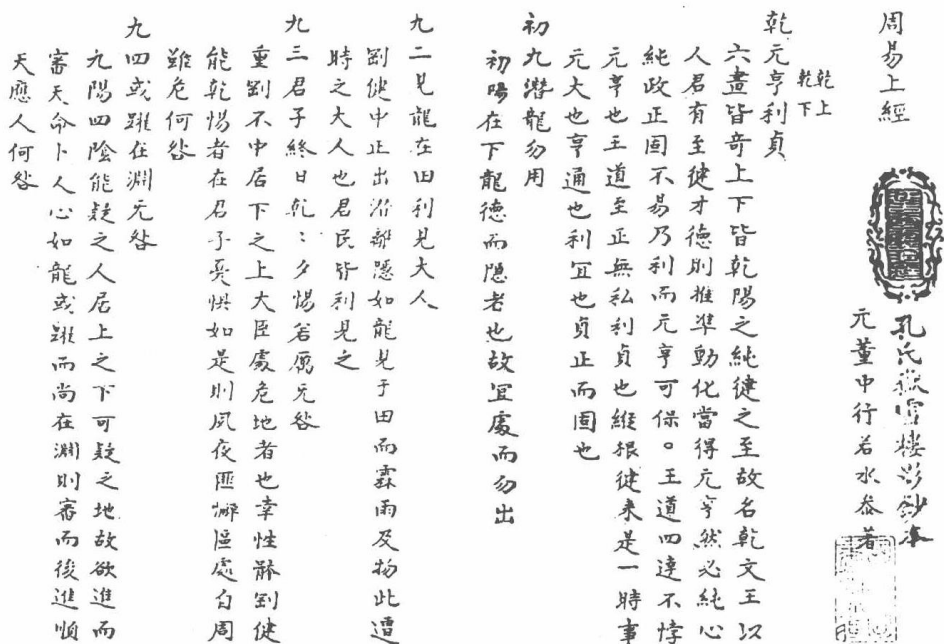 周易上經
孔氏嶽雪樓影鈔本
元董中行若水叅著
乾上
乾下
乾元亨利貞
六畫皆奇上下皆乾陽之純健之至故名乾文王以
人君有至健才德則推準動化當得元亨然必純心
純政正固不易乃利而元亨可保。王道四達不悖
元亨也王道至正無私利貞也縱根健来是一時事
元大也亨通也利冝也貞正而固也
初九潛龍勿用
初陽在下龍德而隱者也故冝處而勿出
九二見龍在田利見大人
劉健中正出潛離隱如龍見于田而霖雨及物此遭
時之大人也君民皆利見之
九三君子終日乾:夕惕若厲无咎
重劉不中居下之上大臣處危地者也幸性體劉健
能乾惕者在君子憂惧如是則夙夜匪懈區處自周
雖危何咎
九四或躍在淵无咎
九陽四陰能疑之人居上之下可疑之地故欲進而
審天命卜人心如龍或躍而尚在淵則審而後進順
天應人何咎